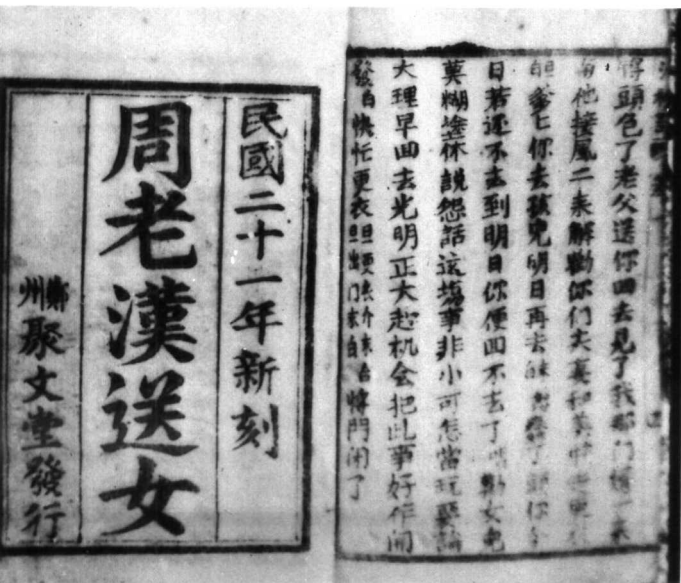 頭色了老父送你回去見了我那門婿一来
他接風二来解勸你们夫妻和美
你去孩兒明日再去
日若还不去到明日你便回不去了勸女兒
莫糊塗休說怨話这塲事非小可怎當玩耍論
大理早回去光明正大趁机会把此事好作開
發白快忙更衣旦門闭了
民國二十一年新刻
周老漢送女
鄭州聚文堂發行